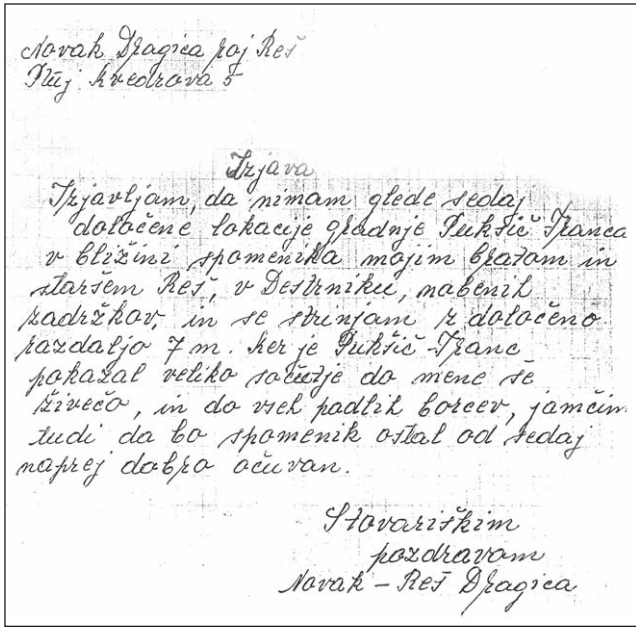 Novak Dragica roj Reš
Ptuj Kvedrova 5
Izjava
Izjavljam, da nimam glede sedaj
določene lokacije gradnje Pukšič Franca
v bližini spomenika mojim bratom in
staršem Reš, v Destrniku, nobenih
zadržkov, in se strinjam z določeno
razdaljo 7 m. Ker je Pukšič Franc
pokazal veliko sočutje do mene še
živečo, in do vseh padlih borcev, jamčim
tudi da bo spomenik ostal od sedaj
naprej dobro očuvan.
S tovariškim
pozdravom
Novak - Reš Dragica